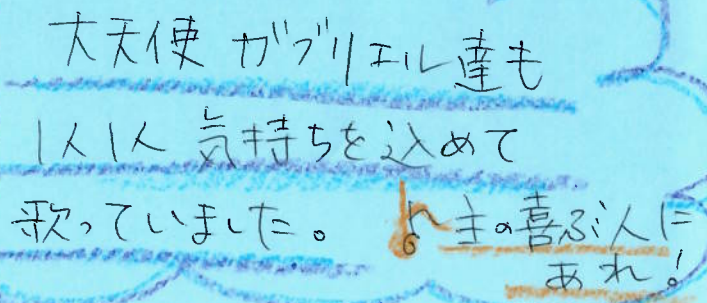 大天使 ガブリエル達も
1人1人 気持ちを込めて
歌っていました。 ♪主の喜ぶ人に
あれ!